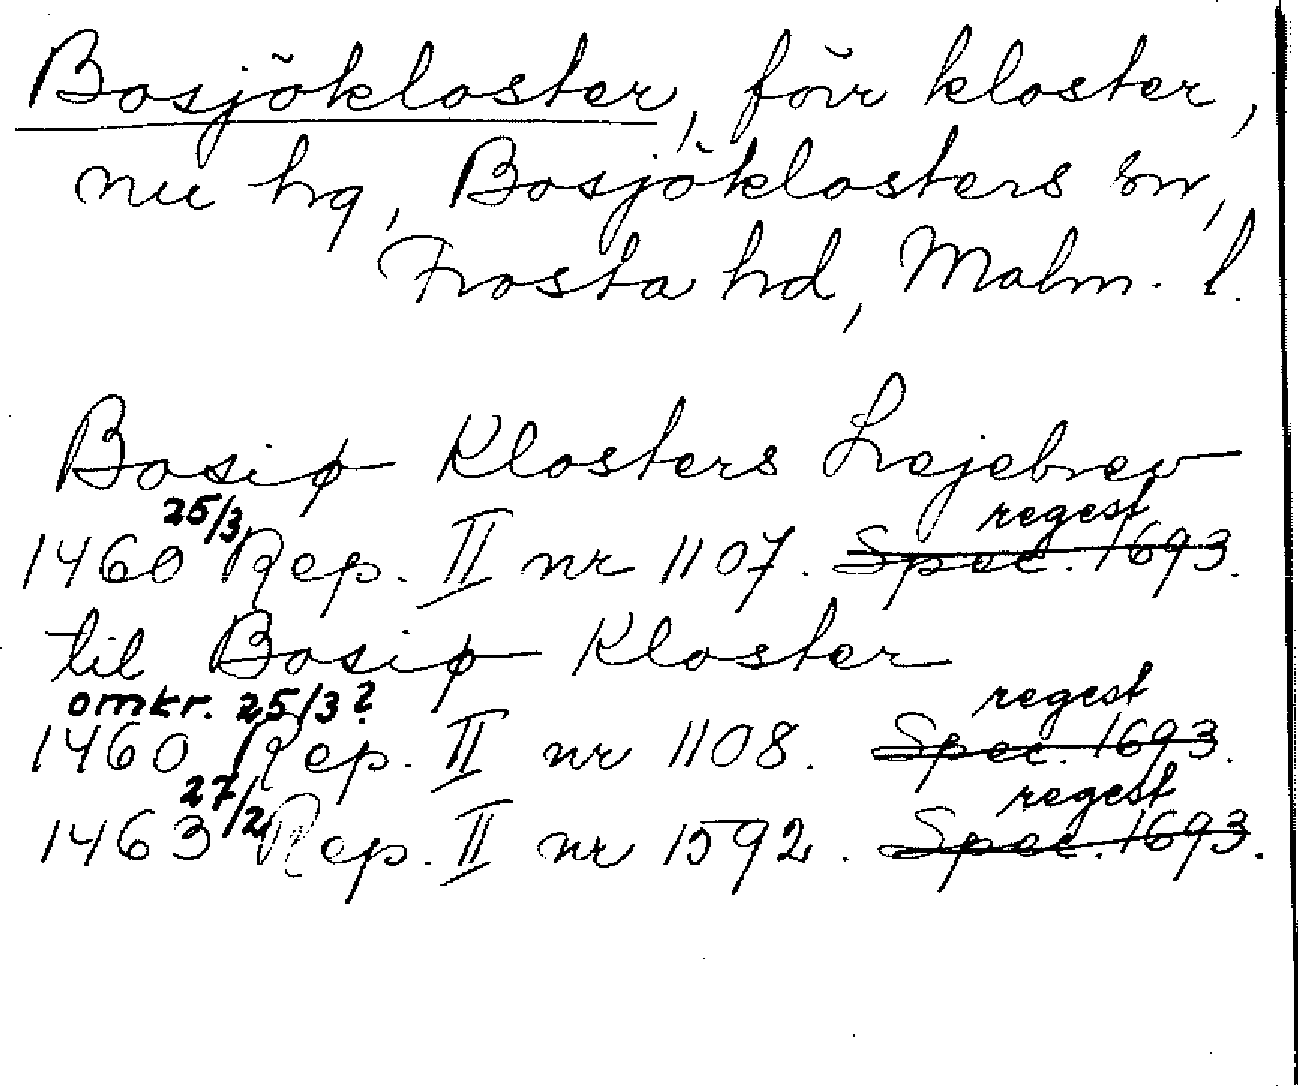 Bosjökloster, förr kloster,
nu hg, Bosjöklosters sn,
Frosta hd, Malm. l.
Bosiø Klosters Lejebrev
1460 25/3 Rep. II nr 1107. regest Spec. 1693.
til Bosiø Kloster
omkr. 25/3?
1460 Rep. II nr 1108. regest Spec. 1693.
1463 27/2 Rep. II nr 1592. regest Spec. 1693.